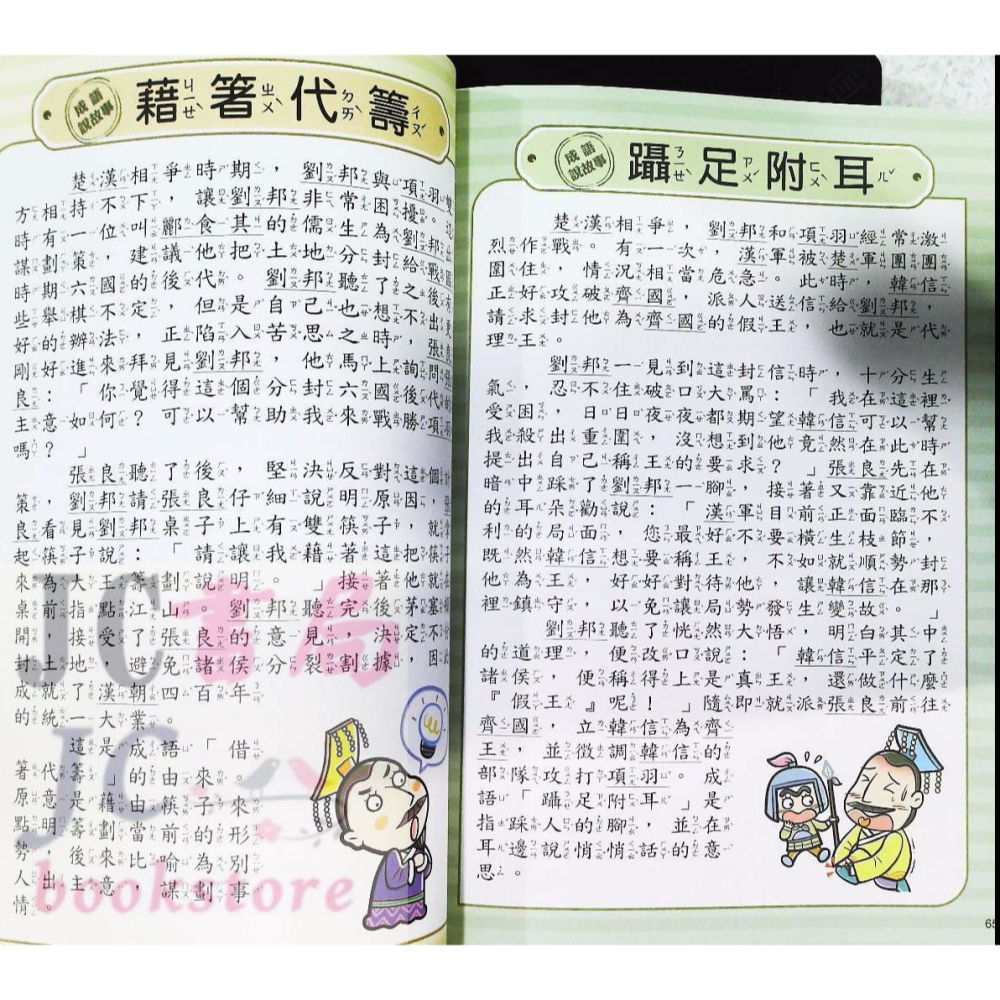 成語
說故事
藉箸代籌
楚漢相爭時期，劉邦與項羽雙
方相持不下，讓劉邦非常困擾。這
時有一位叫酈食其的儒生為劉邦出
謀劃策，建議他把土地分封給戰國
時期六國的後代。劉邦聽了之後有
些舉棋不定，但是自己也想不出更
好的辦法，正陷入苦思之時，張良
剛好進來拜見劉邦，他馬上詢問張
良：「你覺得這個分封六國後代的
主意如何？可以幫助我來戰勝項羽
嗎？」
張良聽了後，堅決反對這個計
策，劉邦請張良仔細說明原因，張
良看見劉邦桌子上有雙筷子，就
起筷子說：「請讓我藉著這把筷子
來為大王籌劃說明。」接著他就
桌前指點江山。劉邦聽完後茅塞
開，接受了張良的意見，決定不分
封土地，避免諸侯分裂割據，因此
成就了漢朝四百年
的統一大業。
這是成語「借
箸代籌」的由來。
原意是藉由筷子來
點明籌劃當前的形
勢，後來比喻為別
人出主意，謀劃事
情。
JC書局
JC
bookstore
成語
說故事
躡足附耳
楚漢相爭，劉邦和項羽經常激
烈作戰。有一次，漢軍被楚軍團團
圍住，情況相當危急。此時，韓信
正好攻破齊國，派人送信給劉邦，
請求封他為齊國的假王，也就是代
理王。
劉邦一見到這封信時，十分生
氣，忍不住破口大罵：「我在這裡
受困，日日夜夜都期望韓信可以幫
我殺出重圍，沒想到他竟然在此時
提出自己稱王的要求？」張良先在
暗中踩了劉邦一腳，接著又靠近他
的耳朵勸說：「漢軍目前正面臨不
利的局面，您最好不要橫生枝節，
既然韓信想要稱王，不如就順勢封
他為王，好好對待他，讓韓信在那
裡鎮守，以免讓局勢發生變故。」
劉邦聽了恍然大悟，明白其中
的道理，便改口說：「韓信平定了
諸侯，便稱得上是真王，還做什麼
『假王』呢！」隨即就派張良前往
齊國，立韓信為齊
王，並徵調韓信的
部隊攻打項羽。成
語「躡足附耳」是
指踩人的腳，並在
耳邊說悄悄話的意
思。